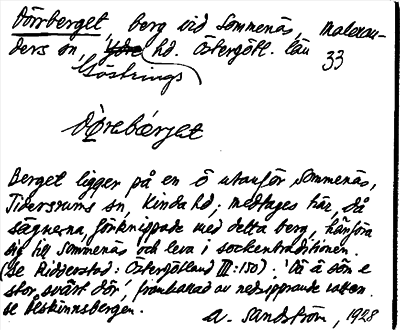 Dörrberget, berg vid Sommenäs, Malexan-
ders sn, Ydre hd. Östergötl. län
Göstrings
33
Döṛebærjet
Berget ligger på en ö utanför Sommenäs,
Tidersrums sn, Kinda hd; medtages här, då
sägnerna, förknippade med detta berg, hänföra
sig till Sommenäs och leva i sockentraditionen.
(Se Ridderstad: Östergötland III:150). 'Dä ä som e
stor svart dör', frambanad av nedsipprande vatten.
Se Bläskinnsbergen.
A. Sandström, 1928